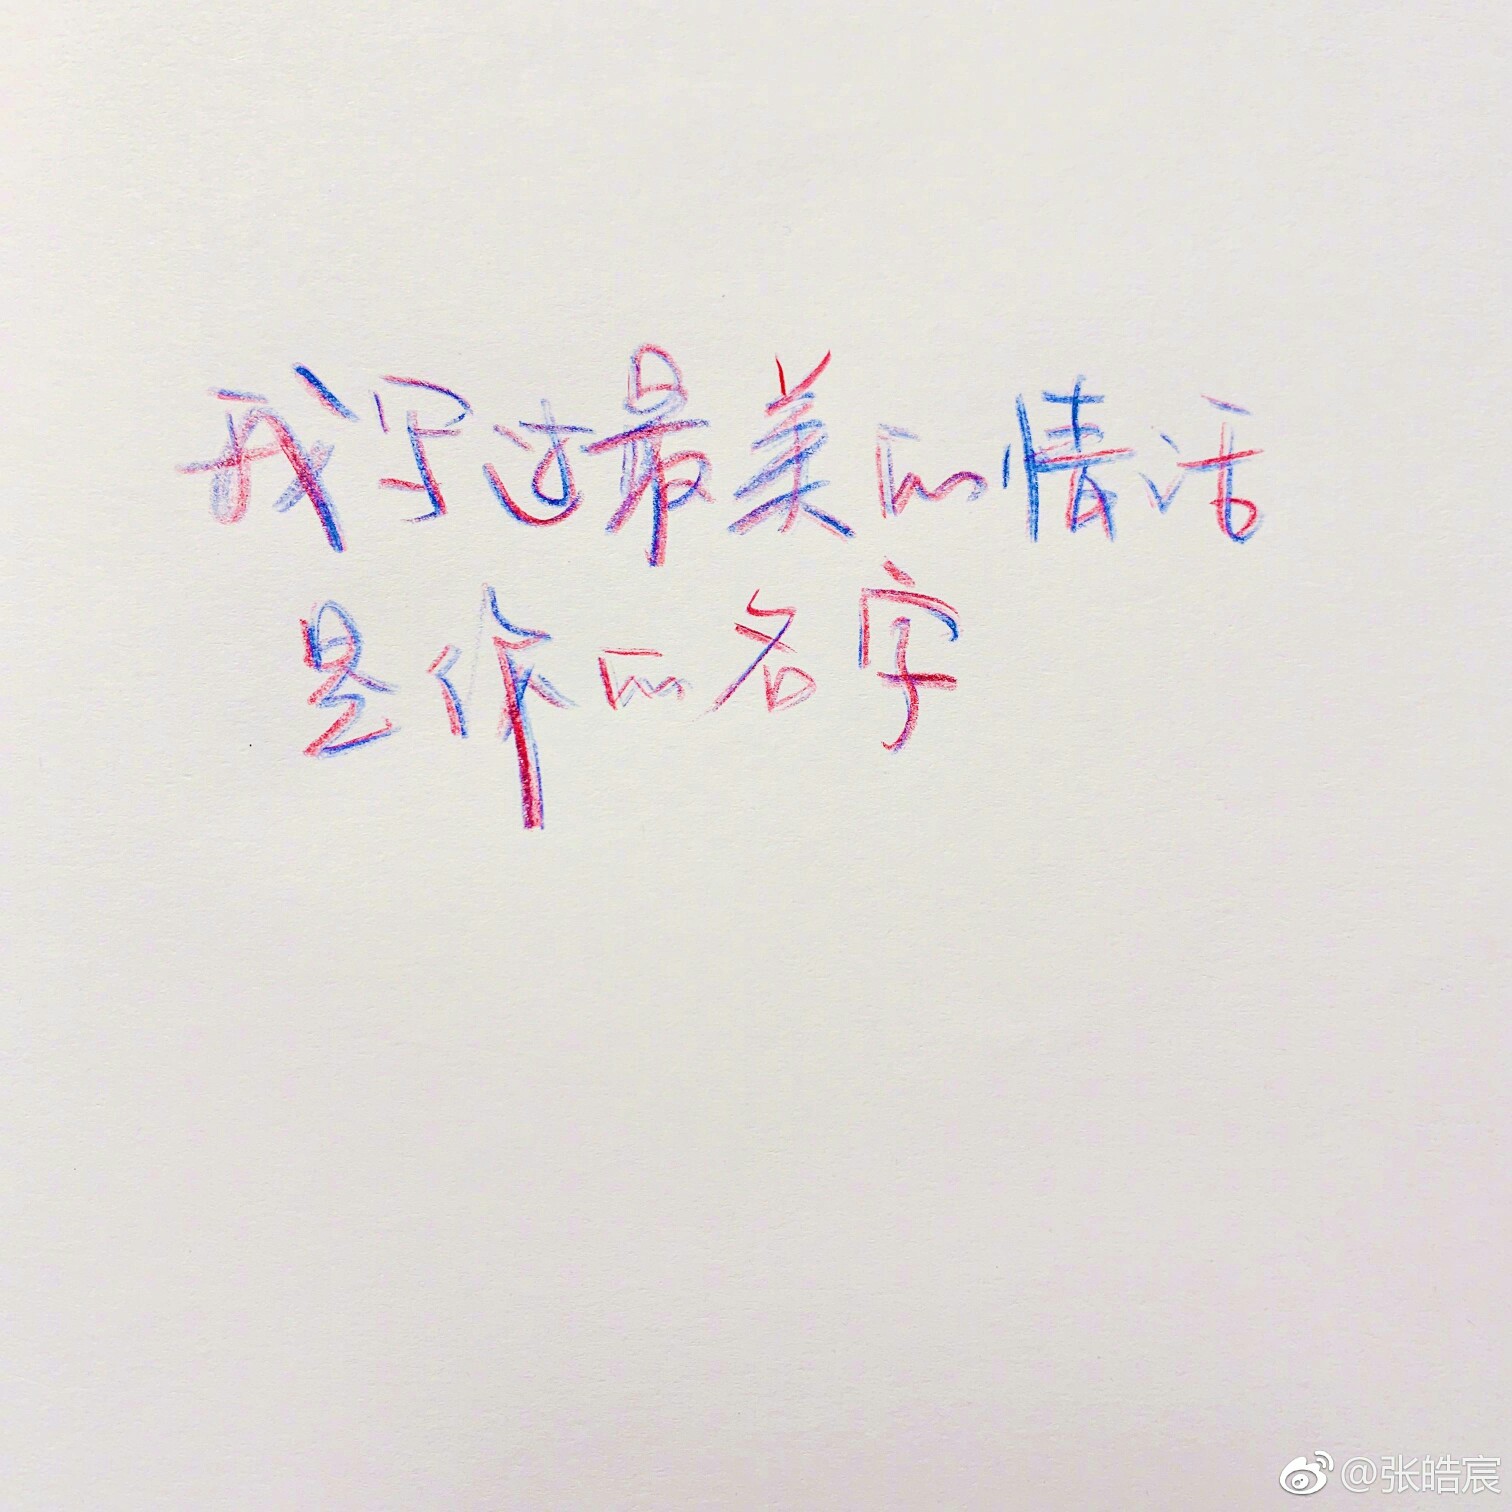 我写过最美的情话
是你的名字
@张皓宸